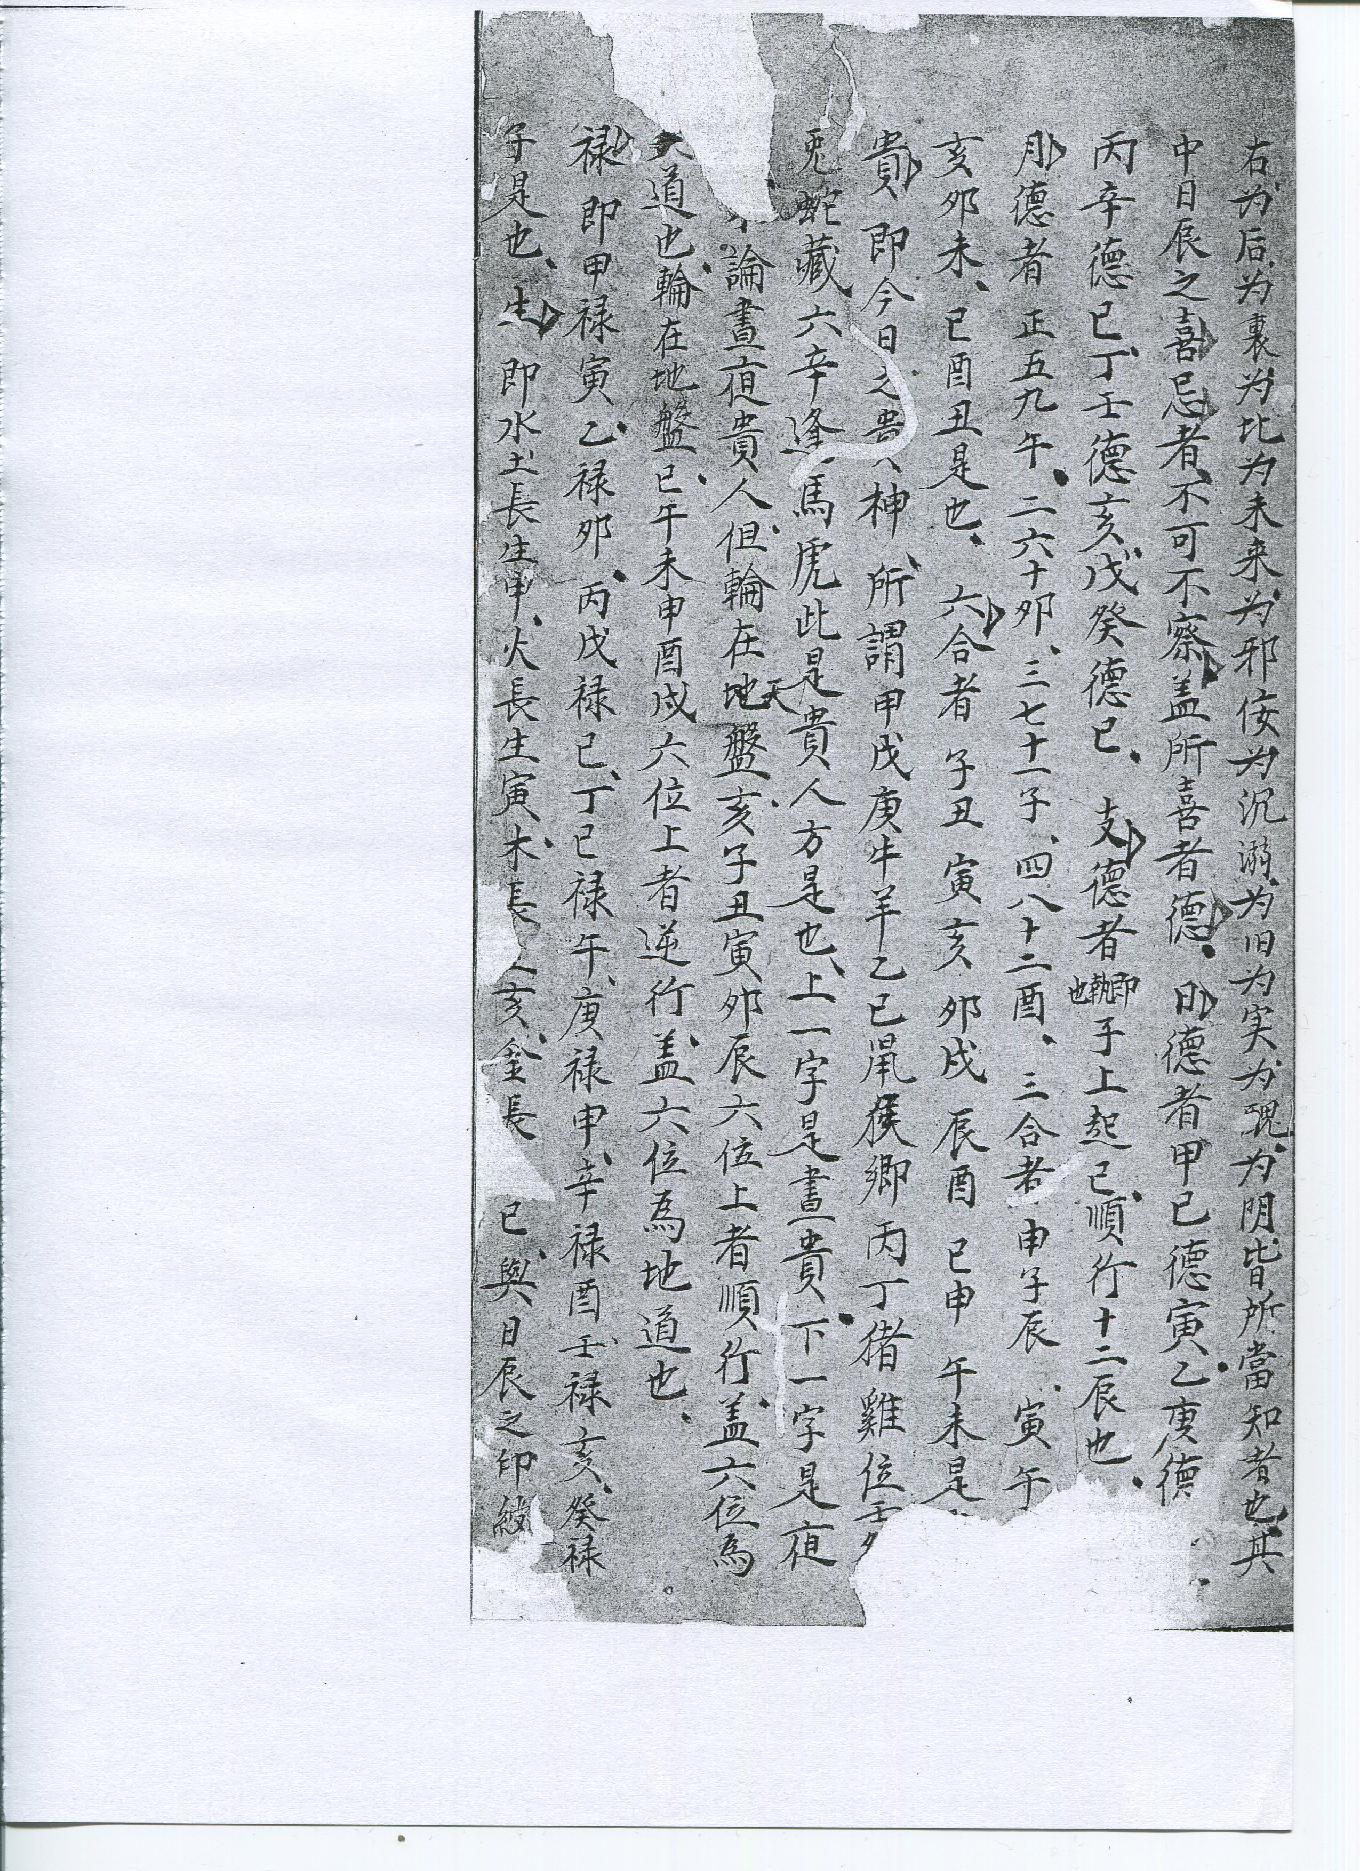 右为后为裏为比为未来为邪佞为沉溺为旧为实为魂为阴皆所當知者也其
中日辰之喜忌者不可不察盖所喜者德日德者甲己德寅乙庚德
丙辛德巳丁壬德亥戊癸德巳支德者即執也子上起巳順行十二辰也
月德者正五九午二六十卯三七十一子四八十二酉三合者申子辰寅午
亥卯未巳酉丑是也六合者子丑寅亥卯戌辰酉巳申午未是
貴即今日之貴神所謂甲戊庚牛羊乙己鼠猴鄉丙丁猪雞位壬
兎蛇藏六辛逢馬虎此是貴人方是也上一字是晝貴下一字是夜
論晝夜貴人但輪在地天盤亥子丑寅卯辰六位上者順行盖六位為
天道也輪在地盤巳午未申酉戌六位上者逆行盖六位為地道也
禄即甲禄寅乙禄卯丙戊禄巳丁己禄午庚禄申辛禄酉壬禄亥癸禄
子是也生即水土長生申火長生寅木長亥金長巳與日辰之印綬